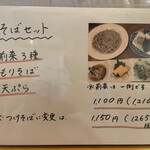 そばセット
前菜3種
もりそば
天ぷら
※前菜は一例です
1,100円(1,210
つけそばに変更は
1,150円(1,265